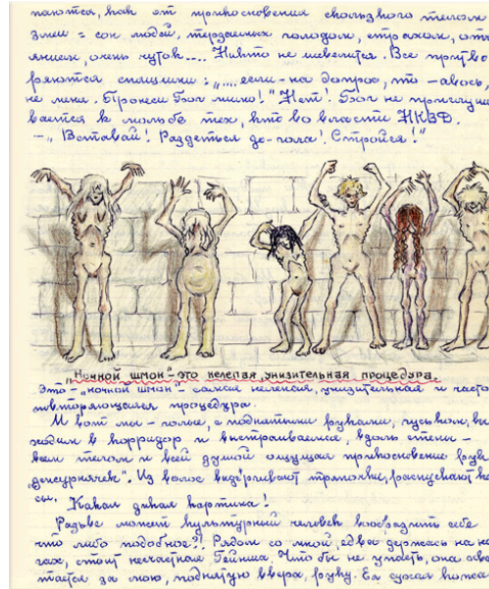 паются, как от прикосновения скользкого тела
змеи = сон людей, терзаемых голодом, страхом, отч
янием очень чуток.... Никто не шевелится. Все притво
ряются спящими: „....если - на допрос, то - авось,
не меня. Пронеси Бог мимо!" Нет! Бог не прислуши
вается к мольбе тех, кто во власти НКВД.
-„ Вставай! Раздеться до-гола! Стройся!"
„Ночной шмон" - это нелепая, унизительная процедура.
Это - „ночной шмон" - самая нелепая, унизительная и часто
повторяющаяся процедура.
И вот мы - голые, с поднятыми руками, гуськом, вы
ходим в корридор и выстраиваемся, вдоль стены -
всем телом и всей душой ощущая прикосновение рук
„дежурнячек". Из волос выдёргивают тряпочки, распускают ко
сы. Какая дикая картина!
Разве может культурный человек вообразить себе
что либо подобное?! Рядом со мной, едва держась на но
гах, стоит несчастная Гейнша. Что бы не упасть, она хва
тается за мою, поднятую вверх, руку. Ея сухая